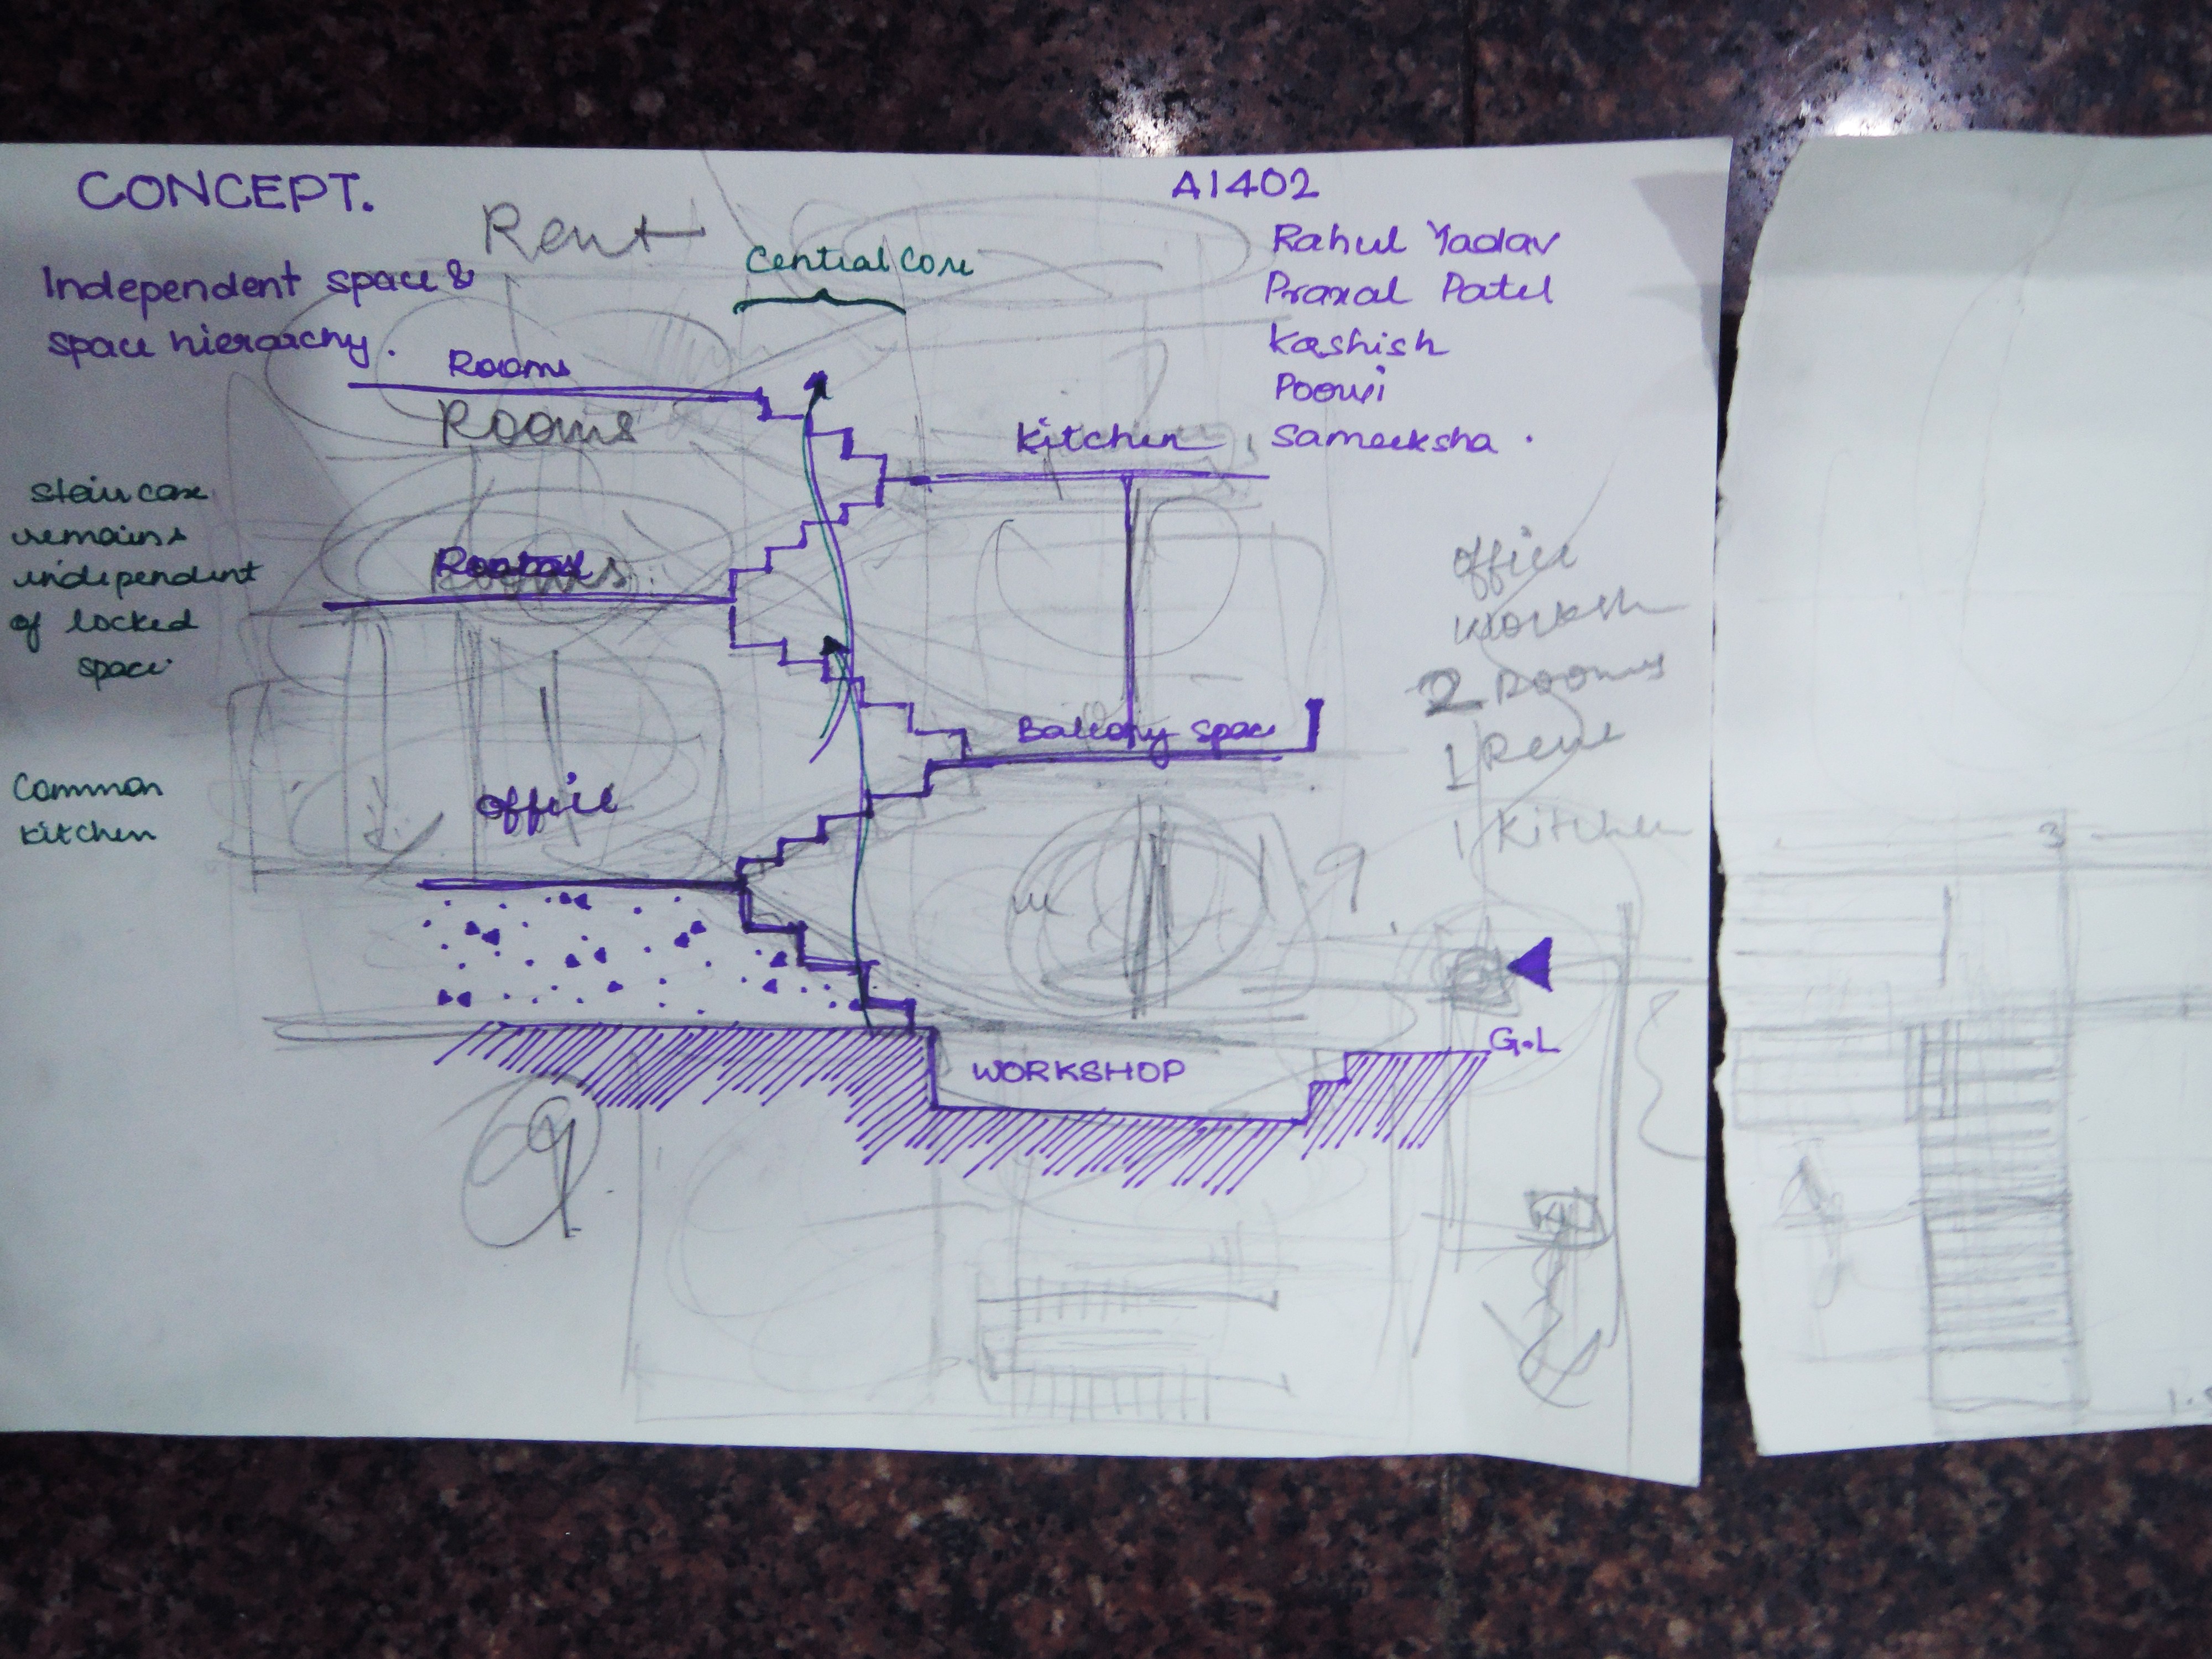 CONCEPT.
Rent
Independent space &
space hierarchy.
Central Core
A1402
Rahul Yadav
Pranal Patel
Kashish
Poorvi
Sameeksha.
Rooms
Rooms
Kitchen
Stair case
remains
independent
of locked
space
Rooms
Office
Worksh
2 Rooms
1 Rent
1 Kitchen
Balcony Space
Common
Kitchen
Office
G.L
WORKSHOP
3